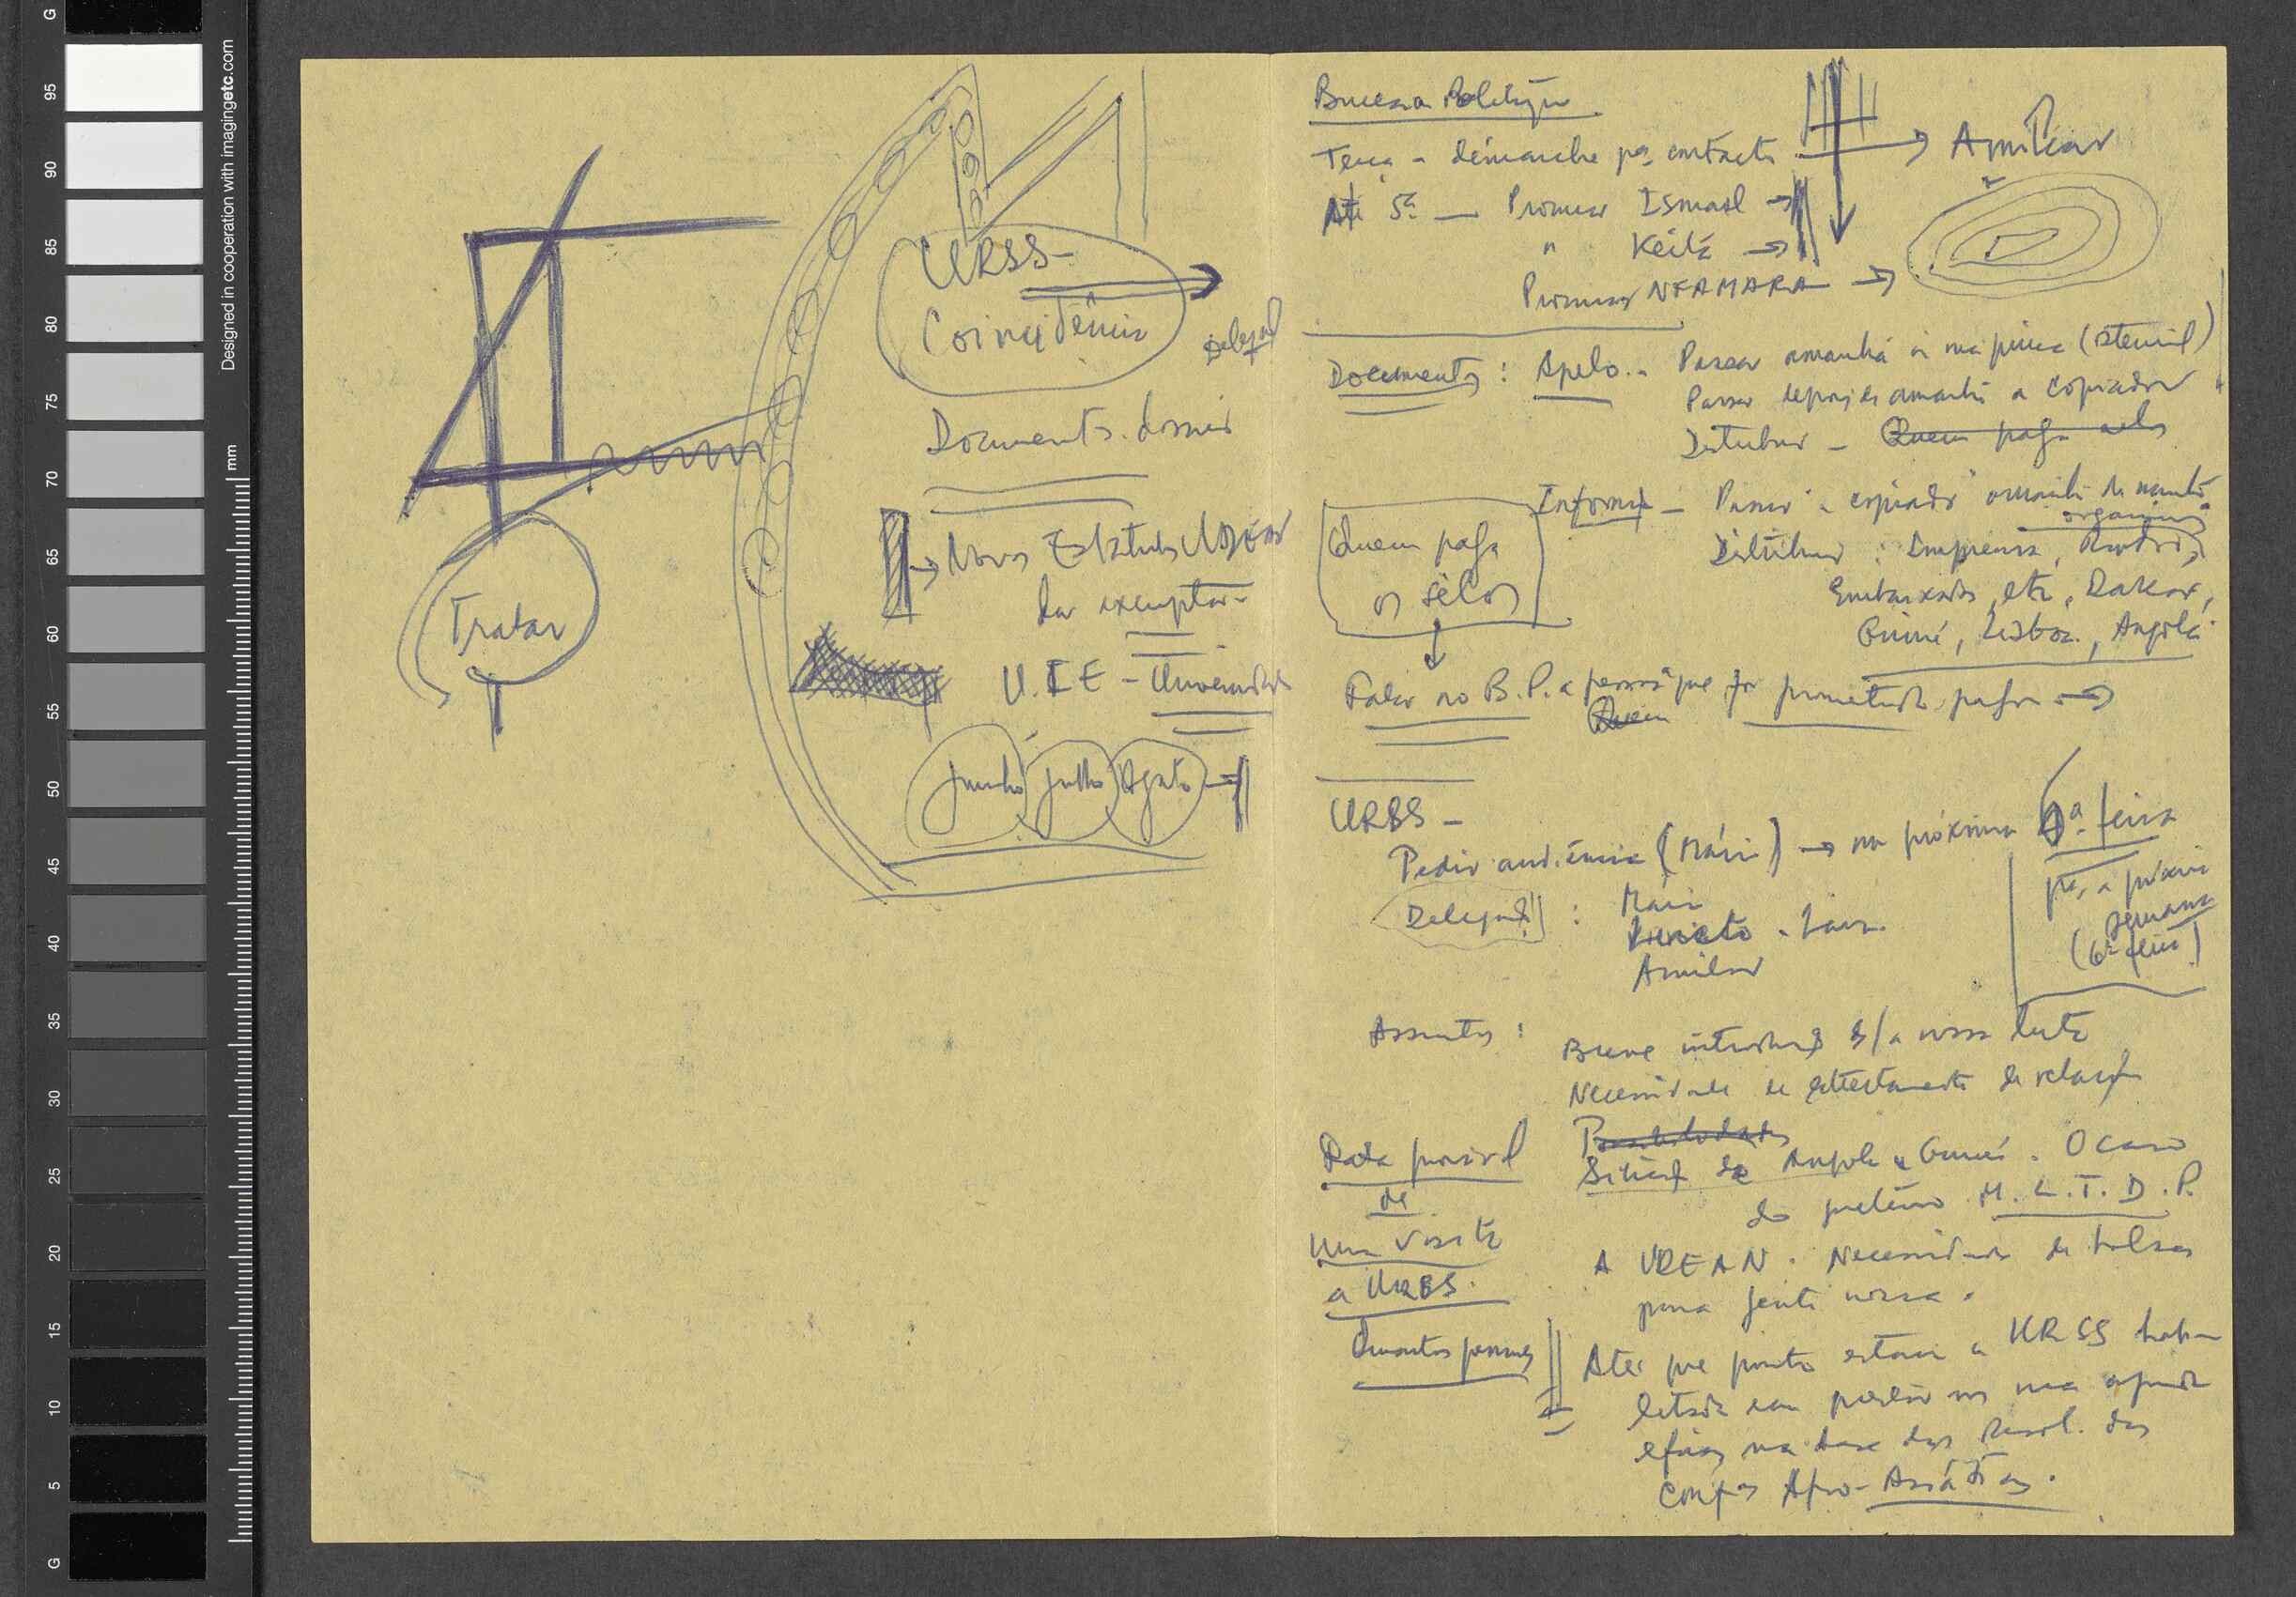 Designed in cooperation with imagingetc.com
mm
G
95
90
85
80
75
70
65
60
55
50
45
40
35
30
25
20
15
10
5
G
URSS -
Coincidência
Document. dossier
→ Novos Estatutos
dar exemplar -
U.I.E - Universidade
Tratar
Junho Julho Agosto →
Bureau Politique
Terça - démarche pª contacto → Amílcar
Até 5ª — Procurar Ismael →
" Keita →
Procurar NFAMARA →
Documentos : Apelo. - Passar amanhã (stencil)
Passar depois de amanhã a copiador
Distribuir - Quem paga selos
Inform - Passar a copiador amanhã de manhã
organismos
Distribuir : Imprensa, Rádio,
Embaixadas, etc, Dakar,
Guiné, Lisboa, Angola
Quem paga
os selos
Falar no B.P. a pessoa que foi prometido pagar →
Quem
URSS -
Pedir audiência (Mário) → na próxima 6ª feira
pª a próxima
semana
(6ª feira)
Delegação :
Mário
Lara
Amílcar
Assuntos :
Breve introdução s/ a nossa luta
Necessidade de estreitamento de relações
Possibilidades
Situação de Angola e Guiné. O caso
do M.L.T.D.P.
A UREAN. Necessidade de bolsas
para gente nossa.
Data provável
de
uma visita
à URSS.
Quantas pessoas
Até que ponto estaria a URSS habi-
litada em prestar-nos uma ajuda
eficaz na base das Resol. das
Confªs Afro-Asiáticas.